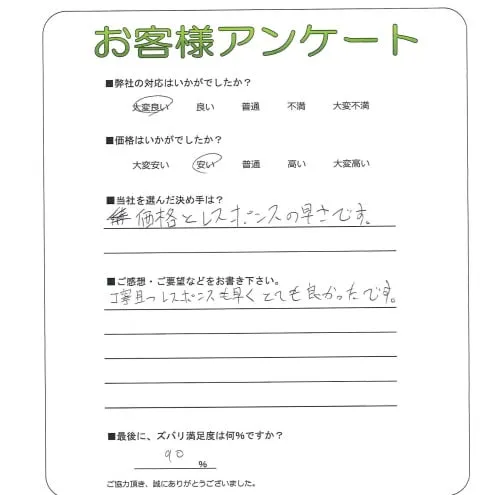 お客様アンケート
■弊社の対応はいかがでしたか？
大変良い 良い 普通 不満 大変不満
■価格はいかがでしたか？
大変安い 安い 普通 高い 大変高い
■当社を選んだ決め手は？
価格とレスポンスの早さです。
■ご感想・ご要望などをお書き下さい。
丁寧且つレスポンスも早くとても良かったです。
■最後に、ズバリ満足度は何%ですか？
90 %
ご協力頂き、誠にありがとうございました。